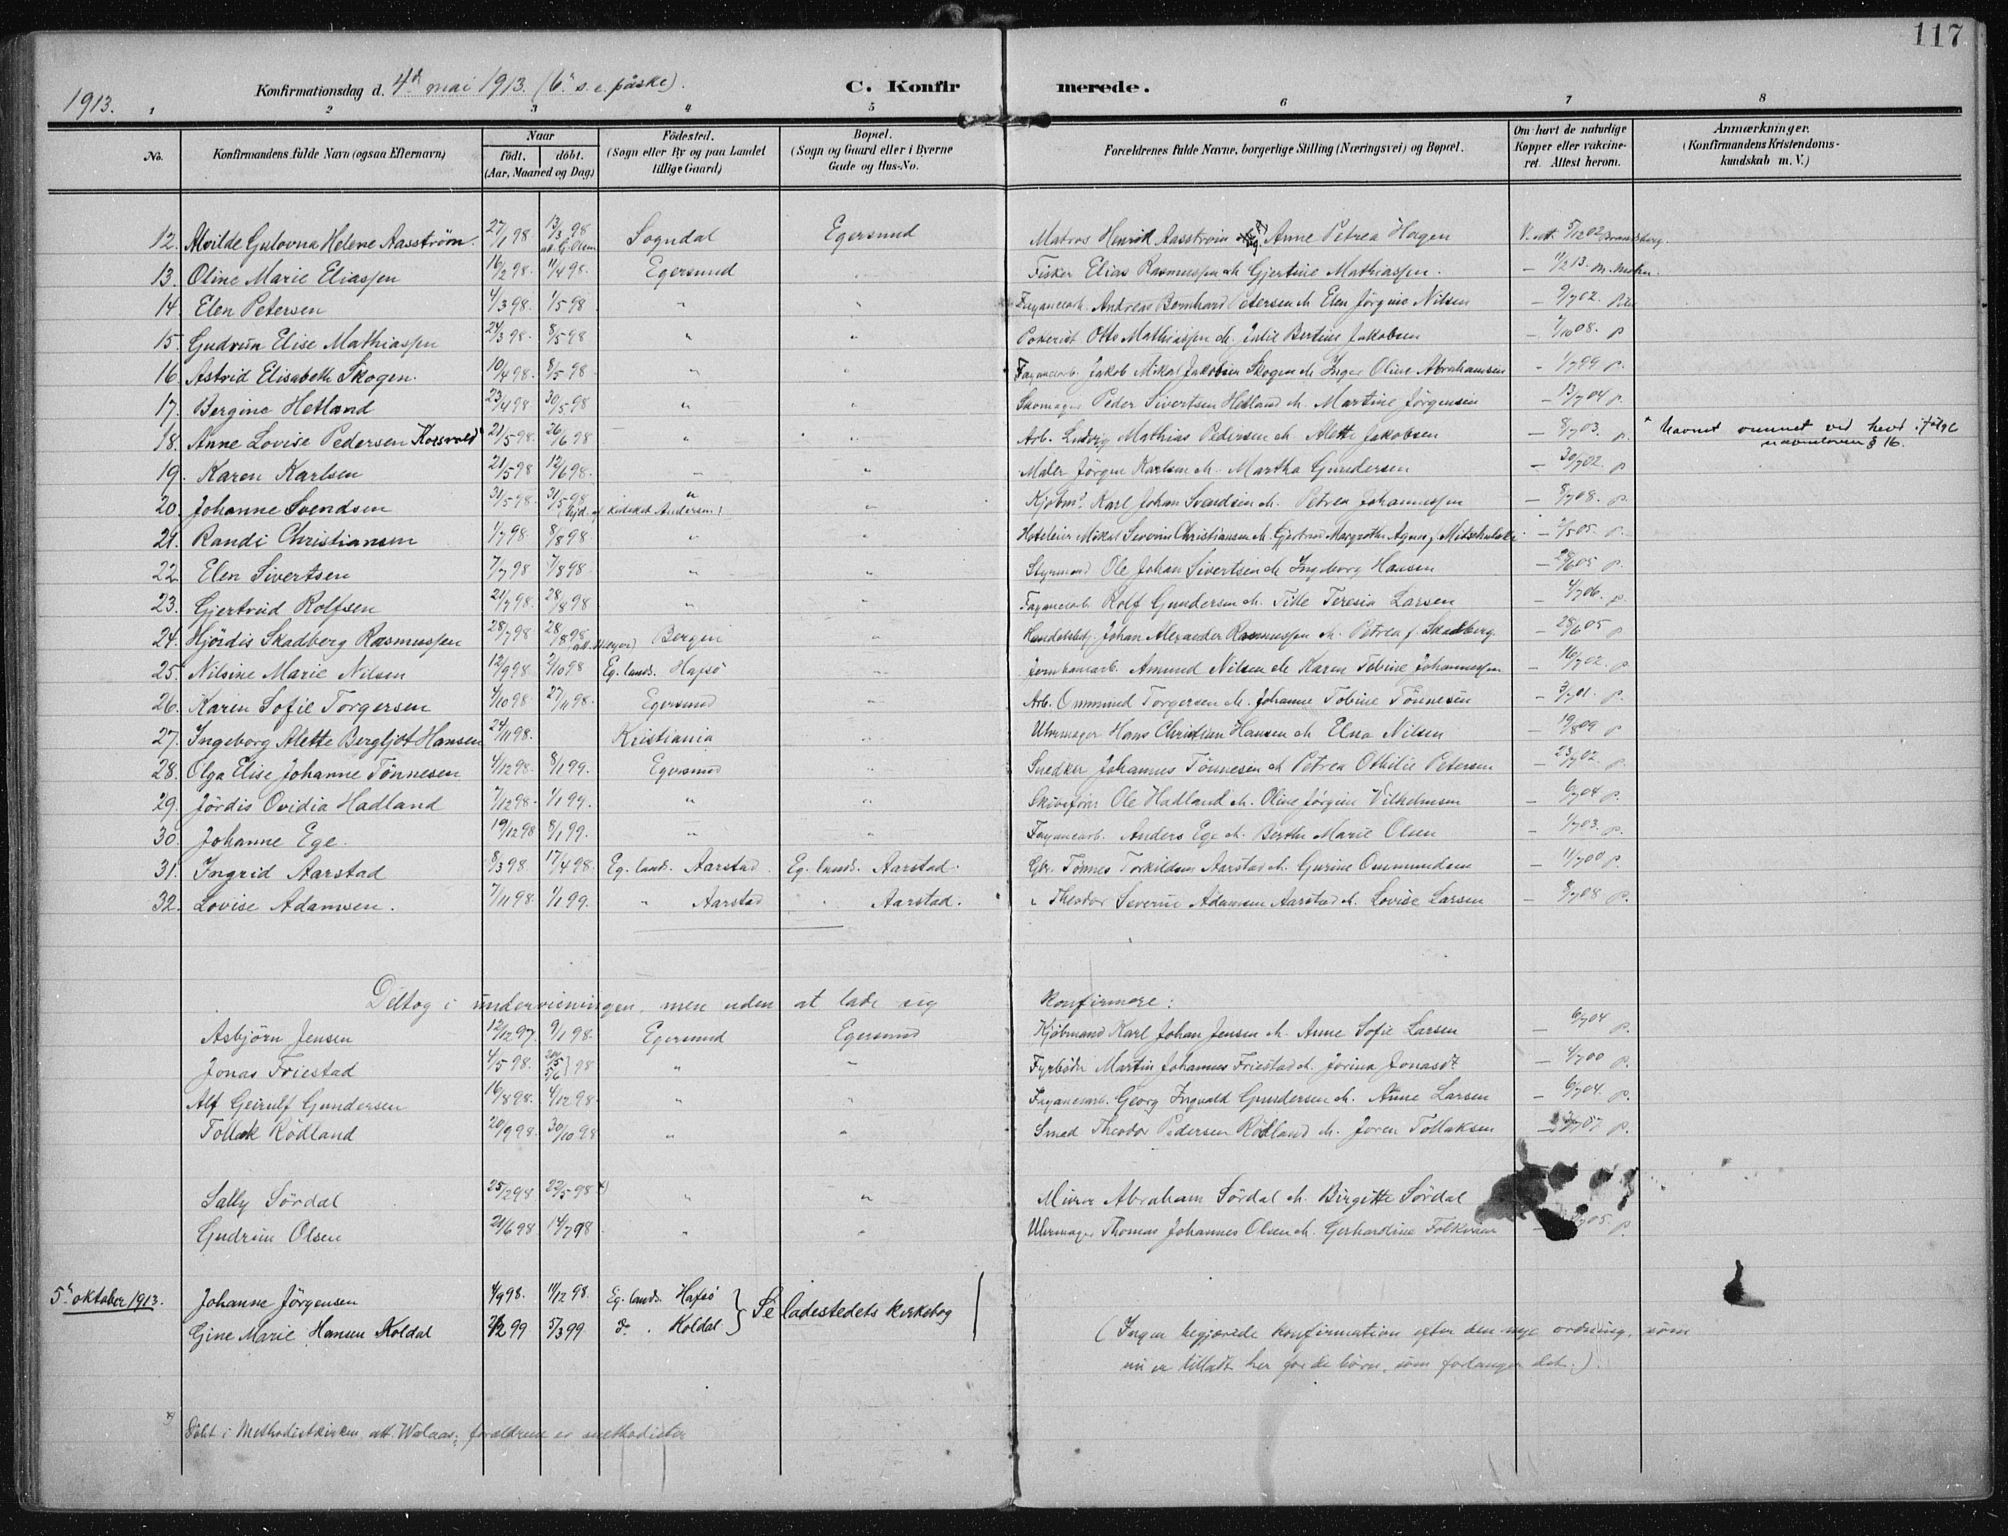 117
1913.
Konfirmationsdag d. 4de mai 1913. (6. s. e. påske).
C. Konfirmerede.
1 2 3 4 5 6 7 8
No.
Konfirmandens fulde Navn (ogsaa Efternavn)
Naar
født. døbt.
(Aar, Maaned og Dag)
Fødested.
(Sogn eller By og paa Landet tillige Gaard)
Bopæl.
(Sogn og Gaard eller i Byerne Gade og Hus-No.
Forældrenes fulde Navne, borgerlige Stilling (Næringsvei) og Bopæl.
Om havt de naturlige Kopper eller vakcineret. Attest herom.
Anmærkninger.
(Konfirmandens Kristendomskundskab m. V.)
12. Alvilde Gulovna Helene Aasström. 27/1 98 13/3 98 Sogndal Egersund Matros Henrik Aasström og Anne Petrea Hagen 5/12 02
13. Oline Marie Eliassen 16/2 98. 11/4 98. Egersund " Fisker Elias Rasmussen & Gjertine Mathiassen.
14. Elen Petersen 4/3 98. 1/5 98 " " Fayancearb. Andreas Bernhard Petersen & Elen Jörgine Nilsen — 9/7 02.
15. Gudrun Elise Mathiassen 24/3 98. 8/5 98 " " Otto Mathiassen & Bertine Jakobsen — 7/10 08. p
16. Astrid Elisabeth Skogen. 10/4 98. 8/5 98 " " Fayancearb. Jakob Mikal Jakobsen Skogen & Inger Oline Abrahamsen — 1/7 99 p.
17. Bergine Hetland 23/4 98 30/5 98 " " Skomager Peder Sivertsen Hetland & Martine Jörgensen — 13/7 04 p.
18. Anne Lovise Pedersen Kossvold* 21/5 98. 26/6 98 " " Arb. Ludvig Mathias Pedersen & Alette Jakobsen — 8/7 03. p * Navnet vunnet ved hevd ifölge navneloven § 16.
19. Karen Karlsen 21/5 98 12/6 98. " " Maler Jörgen Karlsen & Martha Gundersen — 30/7 02. p
20. Johanne Svendsen 31/5 98. 31/5 98 " " Kjöbm. Karl Johan Svendsen & Petrea Johannessen — 8/7 08. p.
21. Randi Christiansen 1/7 98. 8/8 98 " " Hoteleier Mikal Severin Christiansen & Gjertrud Margrethe Agnes f. — 2/5 05. p.
22. Elen Sivertsen 7/7 98 7/8 98. " " Styrmand Ole Johan Sivertsen & Ingeborg Hansen — 28/6 05 p.
23. Gjertrud Rolfsen 21/7 98. 28/8 98 " " Fayancearb. Rolf Gundersen & Teresia Larsen — 4/7 06. p.
24. Hjördis Skadberg Rasmussen 28/7 98. 28/8 98 Bergen " Johan Alexander Rasmussen & Petrea f. Skadberg. — 28/6 05 p
25. Nilsine Marie Nilsen 12/9 98 2/10 98 Eg. lands. Hafsö " Jernbanearb. Amund Nilsen & Karen Tobine Johannessen — 16/7 02. p
26. Karen Sofie Torgersen 4/10 98 27/11 98. Egersund " Arb. Ommund Torgersen & Johanne Tobine Tönnesen — 3/7 01. p
27. Ingeborg Alette Bergljot Hansen 24/11 98. Kristiania " Uhrmager Hans Christian Hansen & Elna Nilsen — 19/8 09 p
28. Olga Elise Johanne Tönnesen 4/12 98. 8/1 99. Egersund " Snedker Johannes Tönnesen & Petrea Othilie Petersen — 23/7 02. p
29. Jördis Ovidia Hadland 7/12 98. 1/1 99. " " Ole Hadland & Oline Jörgine Vilhelmsen — 6/7 04 p.
30. Johanne Ege. 19/12 98 8/1 99. " " Fayancearb. Anders Ege & Berthe Marie Olsen — 1/7 03. p.
31. Ingrid Aarstad 8/3 98 17/4 98. Eg. lands. Aarstad Eg. lands. Aarstad. Gbr. Tönnes Torkildsen Aarstad & Gurine Ommundsen — 11/7 00 p.
32. Lovise Adamsen. 7/11 98. 1/1 99. " Aarstad " Aarstad. " Theodor Severin Adamsen Aarstad & Lovise Larsen — 8/7 08 p.
Deltog i undervisningen, men uden at lade sig konfirmere:
Asbjörn Jensen 12/12 97. 9/1 98. Egersund Egersund Kjöbmand Karl Johan Jensen & Anne Sofie Larsen — 6/7 04 p.
Jonas Friestad 4/5 98. 20/5 5/6 } 98 " " Fyrböder Martin Johannes Friestad & Jorina Jonasdt. — 4/7 00 p.
Alf Geirulf Gundersen 16/8 98. 4/12 98. " " Fayancearb. Georg Ingvald Gundersen & Anne Larsen — 6/7 04. p.
Tollak Rödland 20/9 98. 30/10 98 " " Smed Theodor Pedersen Rödland & Joren Tollaksen p.
Sally Sördal 25/2 98 22/5 98 *) " " Murer Abraham Sördal & Birgitte Sördal
Gudrun Olsen 21/6 98 14/7 98 " " Uhrmager Thomas Johannes Olsen & Gerhardine Folkvam 05. p.
5. oktober 1913. Johanne Jörgensen 4/9 98. 11/12 98. Eg. lands. Hafsö } Se ladestedets kirkebog
Gine Marie Hansen Koldal 2/2 99 5/3 99 do. Koldal
( Ingen begjærede konfirmation efter den nye ordning, som
nu er tilladt her for de börn, som forlanger det.).
*) Döbt i Methodistkirken, forældrene er methodister